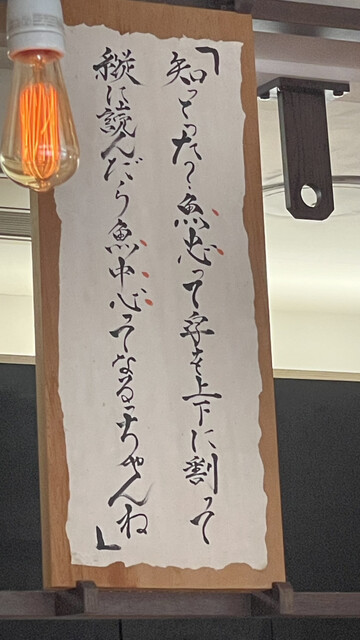 「知っとった?魚忠って字を上下に割って
縦に読んだら魚中心ってなるっちゃんね」